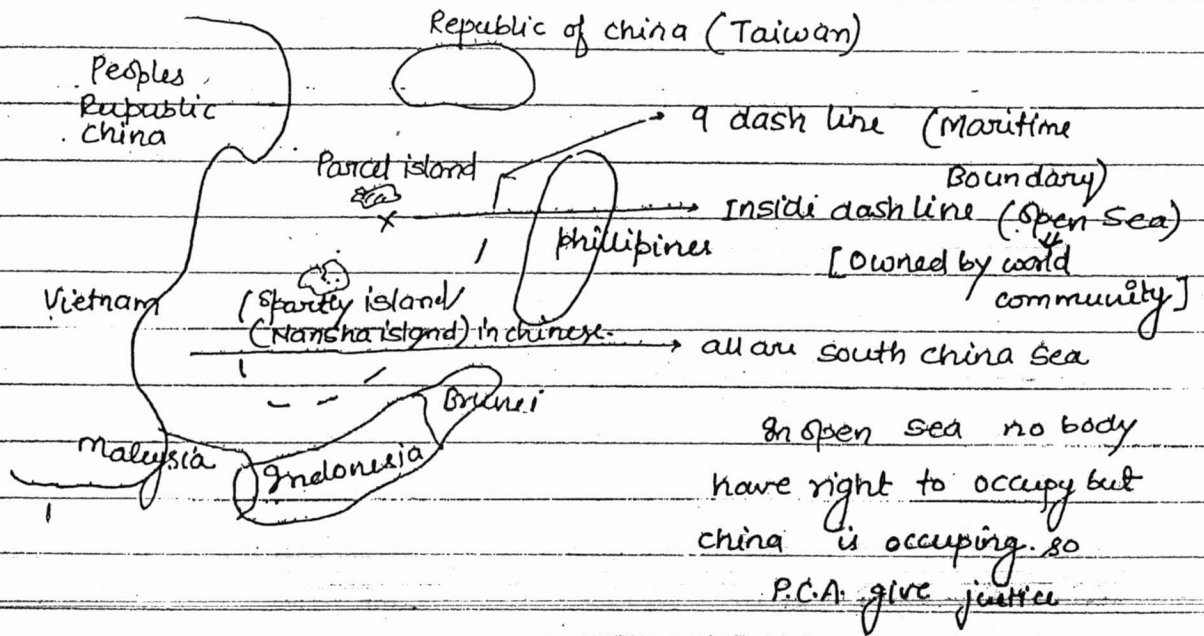 Republic of china (Taiwan)
Peoples
Rupublic
china
9 dash line (Maritime
Boundary)
Parcel island
Insidi dash line (open sea)
phillipines
[Owned by world
community]
Vietnam
(Spartly island
(Nansha island) in chinese.
all are south china sea
Brunei
Malaysia
Indonesia
In open sea no body
have right to occupy but
china is occuping. so
P.C.A. give justice